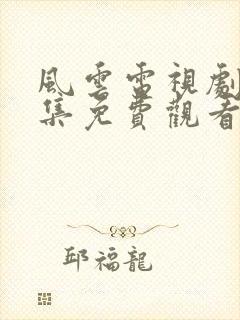 風雲雷視劇
集免費觀看
邱福龍